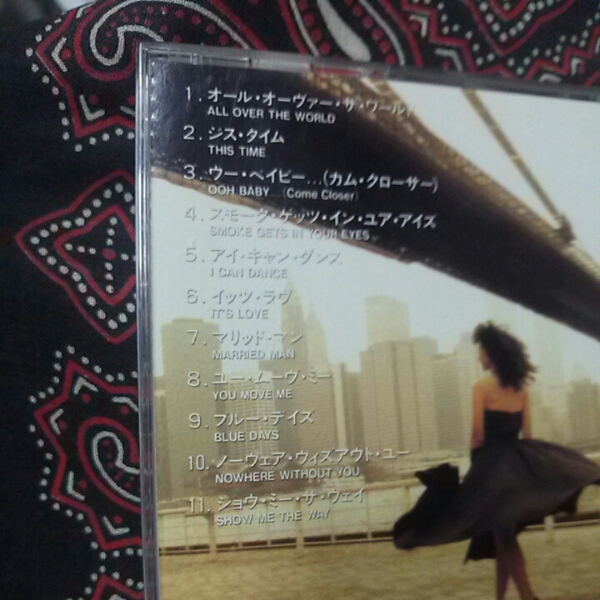 1. オール・オーヴァー・ザ・ワールド
ALL OVER THE WORLD
2. ジス・タイム
THIS TIME
3. ウー・ベイビー…(カム・クローサー)
OOH BABY (Come Closer)
4. スモーク・ゲッツ・イン・ユア・アイズ
SMOKE GETS IN YOUR EYES
5. アイ・キャン・ダンス
I CAN DANCE
6. イッツ・ラヴ
IT'S LOVE
7. マリッド・マン
MARRIED MAN
8. ユー・ムーヴ・ミー
YOU MOVE ME
9. ブルー・デイズ
BLUE DAYS
10. ノーウェア・ウィズアウト・ユー
NOWHERE WITHOUT YOU
11. ショウ・ミー・ザ・ウェイ
SHOW ME THE WAY